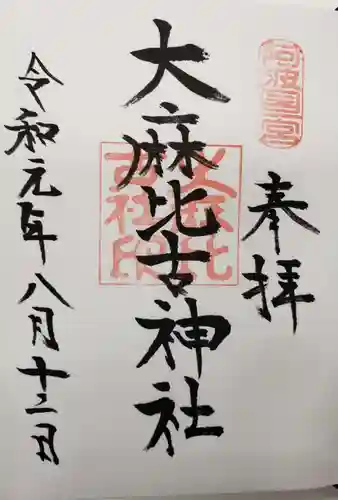 阿波一宮
奉拝
大麻比古神社
大麻比古社印
令和元年八月十二日